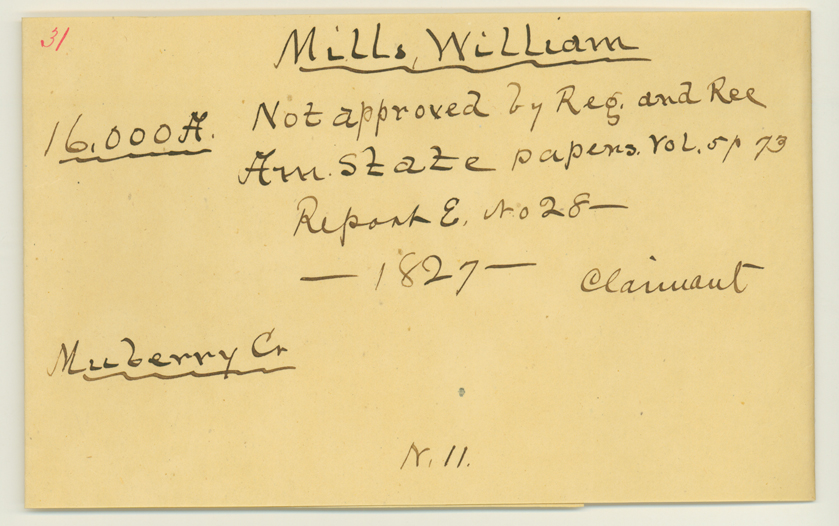 31
Mills, William
16,000 A. Not approved by Reg. and Rec
Am. State papers. Vol. 5 p 73
Report E, No 28 —
— 1827 — Claimant
Muberry Cr
N. 11.